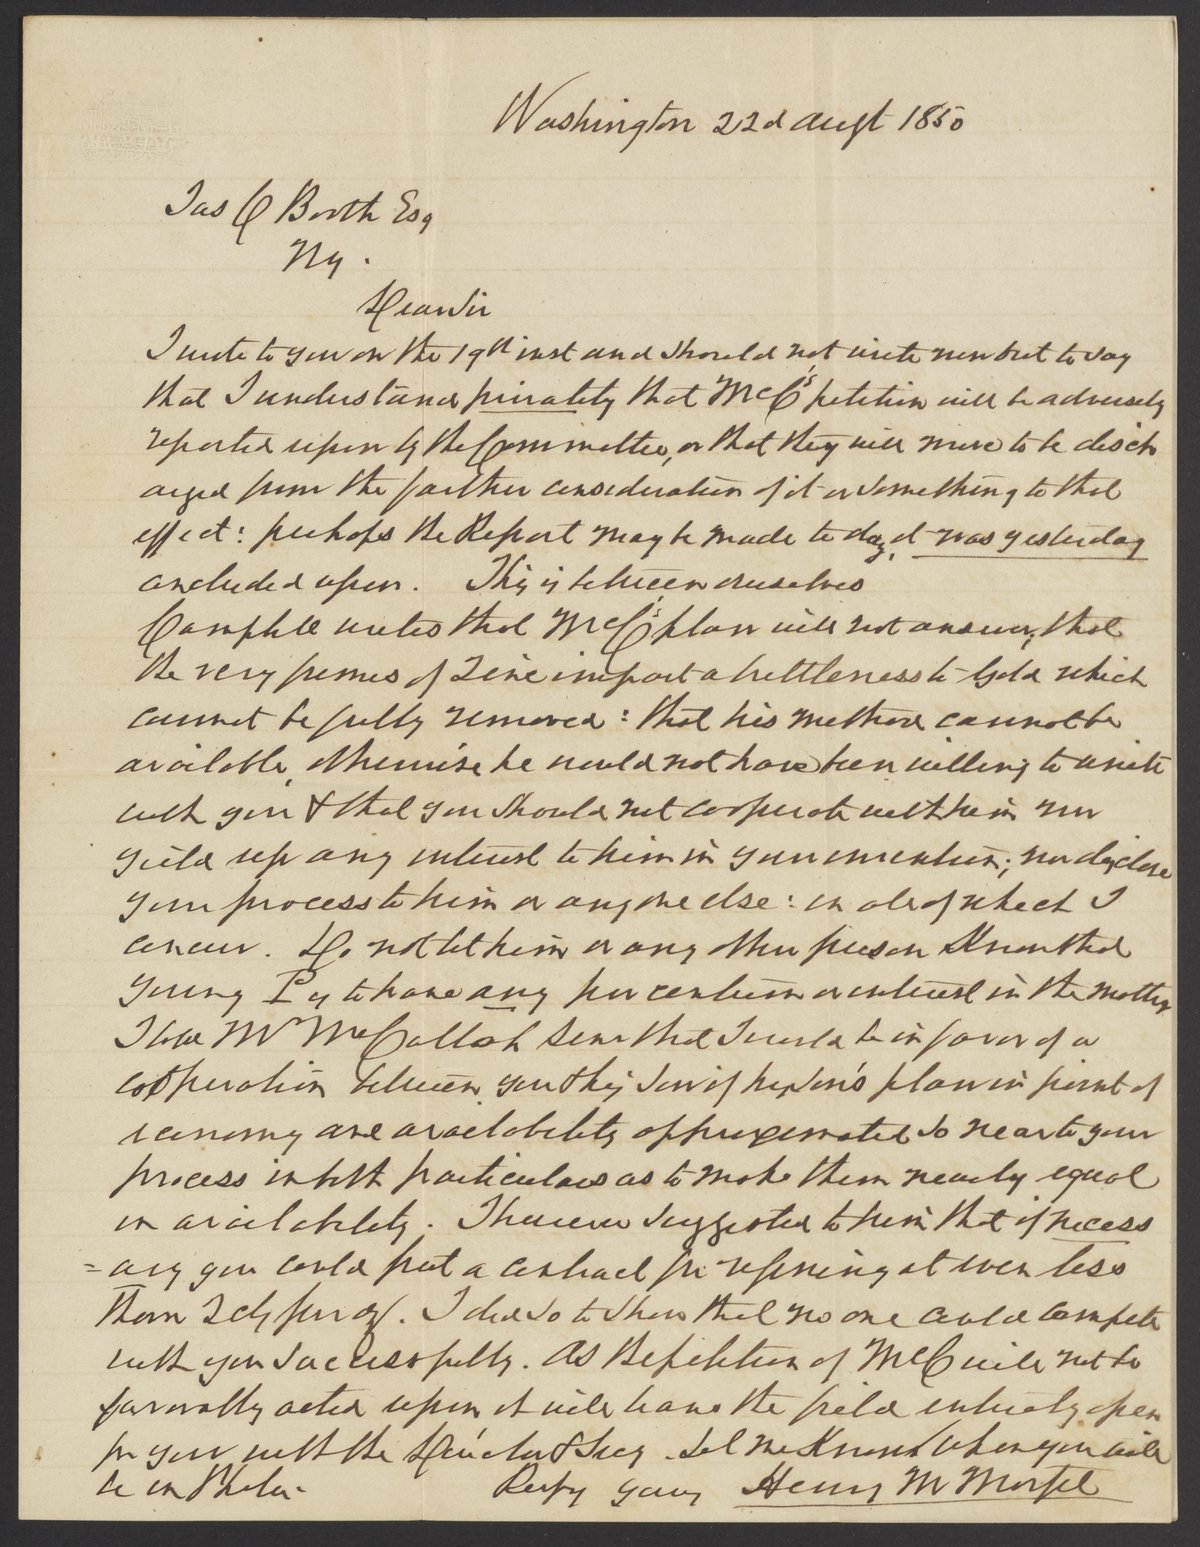 Washington 22d Augt 1850
Jas C Booth Esq
NY.
Dear Sir
I wrote to you on the 19th inst and should not write now but to say
that I understand privately that McC's petition will be adversely
reported upon by the Committee, or that they will move to be disch
arged from the farther consideration of it or something to that
effect: perhaps the Report may be made to day, it was yesterday
concluded upon. This is between ourselves
Campbell writes that McC's plan will not answer; that
the very fumes of Zinc impart a brittleness to Gold which
cannot be fully removed: that his method cannot be
available, otherwise he would not have been willing to unite
with you & that you should not cooperate with him nor
yield up any interest to him in your invention; nor disclose
your process to him or any one else: in all of which I
concur. Do not let him or any other person Know that
young P is to have any per centum or interest in the matter
I told Mr McCulloh Senr that I would be in favor of a
cooperation between you & his son if his son's plan in point of
economy and availability approximated so near to your
process in both particulars as to make them nearly equal
in availability. I however suggested to him that if necess
=ary you could put a contract for refining at even less
than 2 cts per oz. I did so to show that no one could compete
with you successfully. As the petition of McC will not be
favorably acted upon it will leave the field entirely open
for you with the Director & Secy. Let me Know when you will
be in Phila.
Resfy yours Henry M Morfit